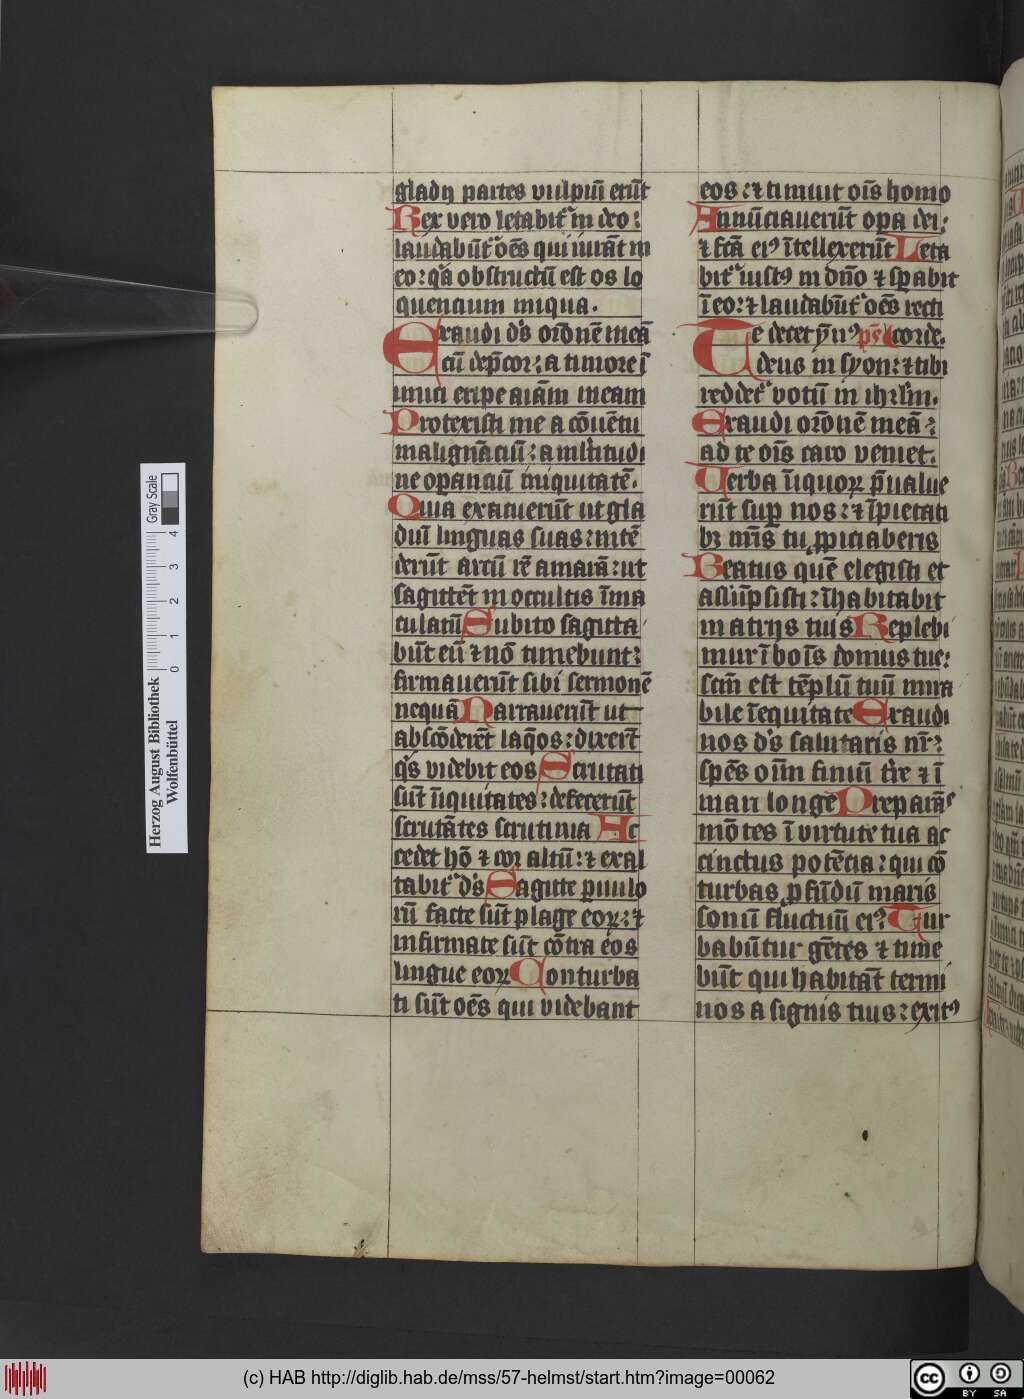 gladij partes vulpiū erūt
Rex vero letabit᷑ in deo:
laudabūt᷑ oēs qui iurāt in
eo: q̄a obstructū est os lo
quencium iniqua.
Exaudi d̄s or̄onē meā
cū dep̄cor: a timore ī
imici eripe aīam meam
Protexisti me a cōuētu
malignāciū: a ml̄titudi
ne op̄anciū iniquitatē.
Quia exacuerūt ut gla
diū linguas suas: intē
derūt arcū rē amarā: ut
sagittēt in occultis īma
culatū Subito sagitta
būt eū ⁊ nō timebunt:
firmauerūt sibi sermonē
nequā Narrauerūt ut
abscōderēt laq̄os: dixerūt
q̄s videbit eos Scrutati
sūt īiquitates: defecerūt
scrutātes scrutinia Ac
cedet hō ⁊ cor altū: ⁊ exal
tabit᷑ d̄s Sagitte ꝑuulo
rū facte sūt plage eoꝝ: ⁊
infirmate sūt cōtra eos
lingue eoꝝ Conturba
ti sūt oēs qui videbant
eos: ⁊ timuit oīs homo
Annūciauerūt opa dei:
⁊ fc̄ā eiꝰ ītellexerūt Leta
bit᷑ iustꝰ in dn̄o ⁊ sꝑabit
ī eo: ⁊ laudabūt᷑ oēs recti
corde. ps̄
Te decet ȳnꝰ
deus in syon: ⁊ tibi
reddet᷑ votū in ihrl̄m.
Exaudi or̄onē meā:
ad te oīs caro veniet.
Verba īiquoꝝ p̄ualue
rūt suꝑ nos: ⁊ īpietati
bꝫ nr̄is tu ꝓpiciaberis
Beatus quē elegisti et
assūpsisti: īhabitabit
in atrijs tuis Replebi
mur ī bonīs domus tue:
scm̄ est tēplū tuū mira
bile ī equitate Exaudi
nos d̄s salutaris nr̄:
spēs oīm finiū t̄re ⁊ ī
mari longe Preparās
mōtes ī virtute tua ac
cinctus potēcia: qui cō
turbas ꝓfūdū maris
sonū fluctuū eiꝰ Tur
babūtur gētes ⁊ time
būt qui habitāt termi
nos a signis tuis: exitꝰ
Herzog August Bibliothek
Wolfenbüttel
0 1 2 3 4
Gray Scale
(c) HAB http://diglib.hab.de/mss/57-helmst/start.htm?image=00062
cc BY SA